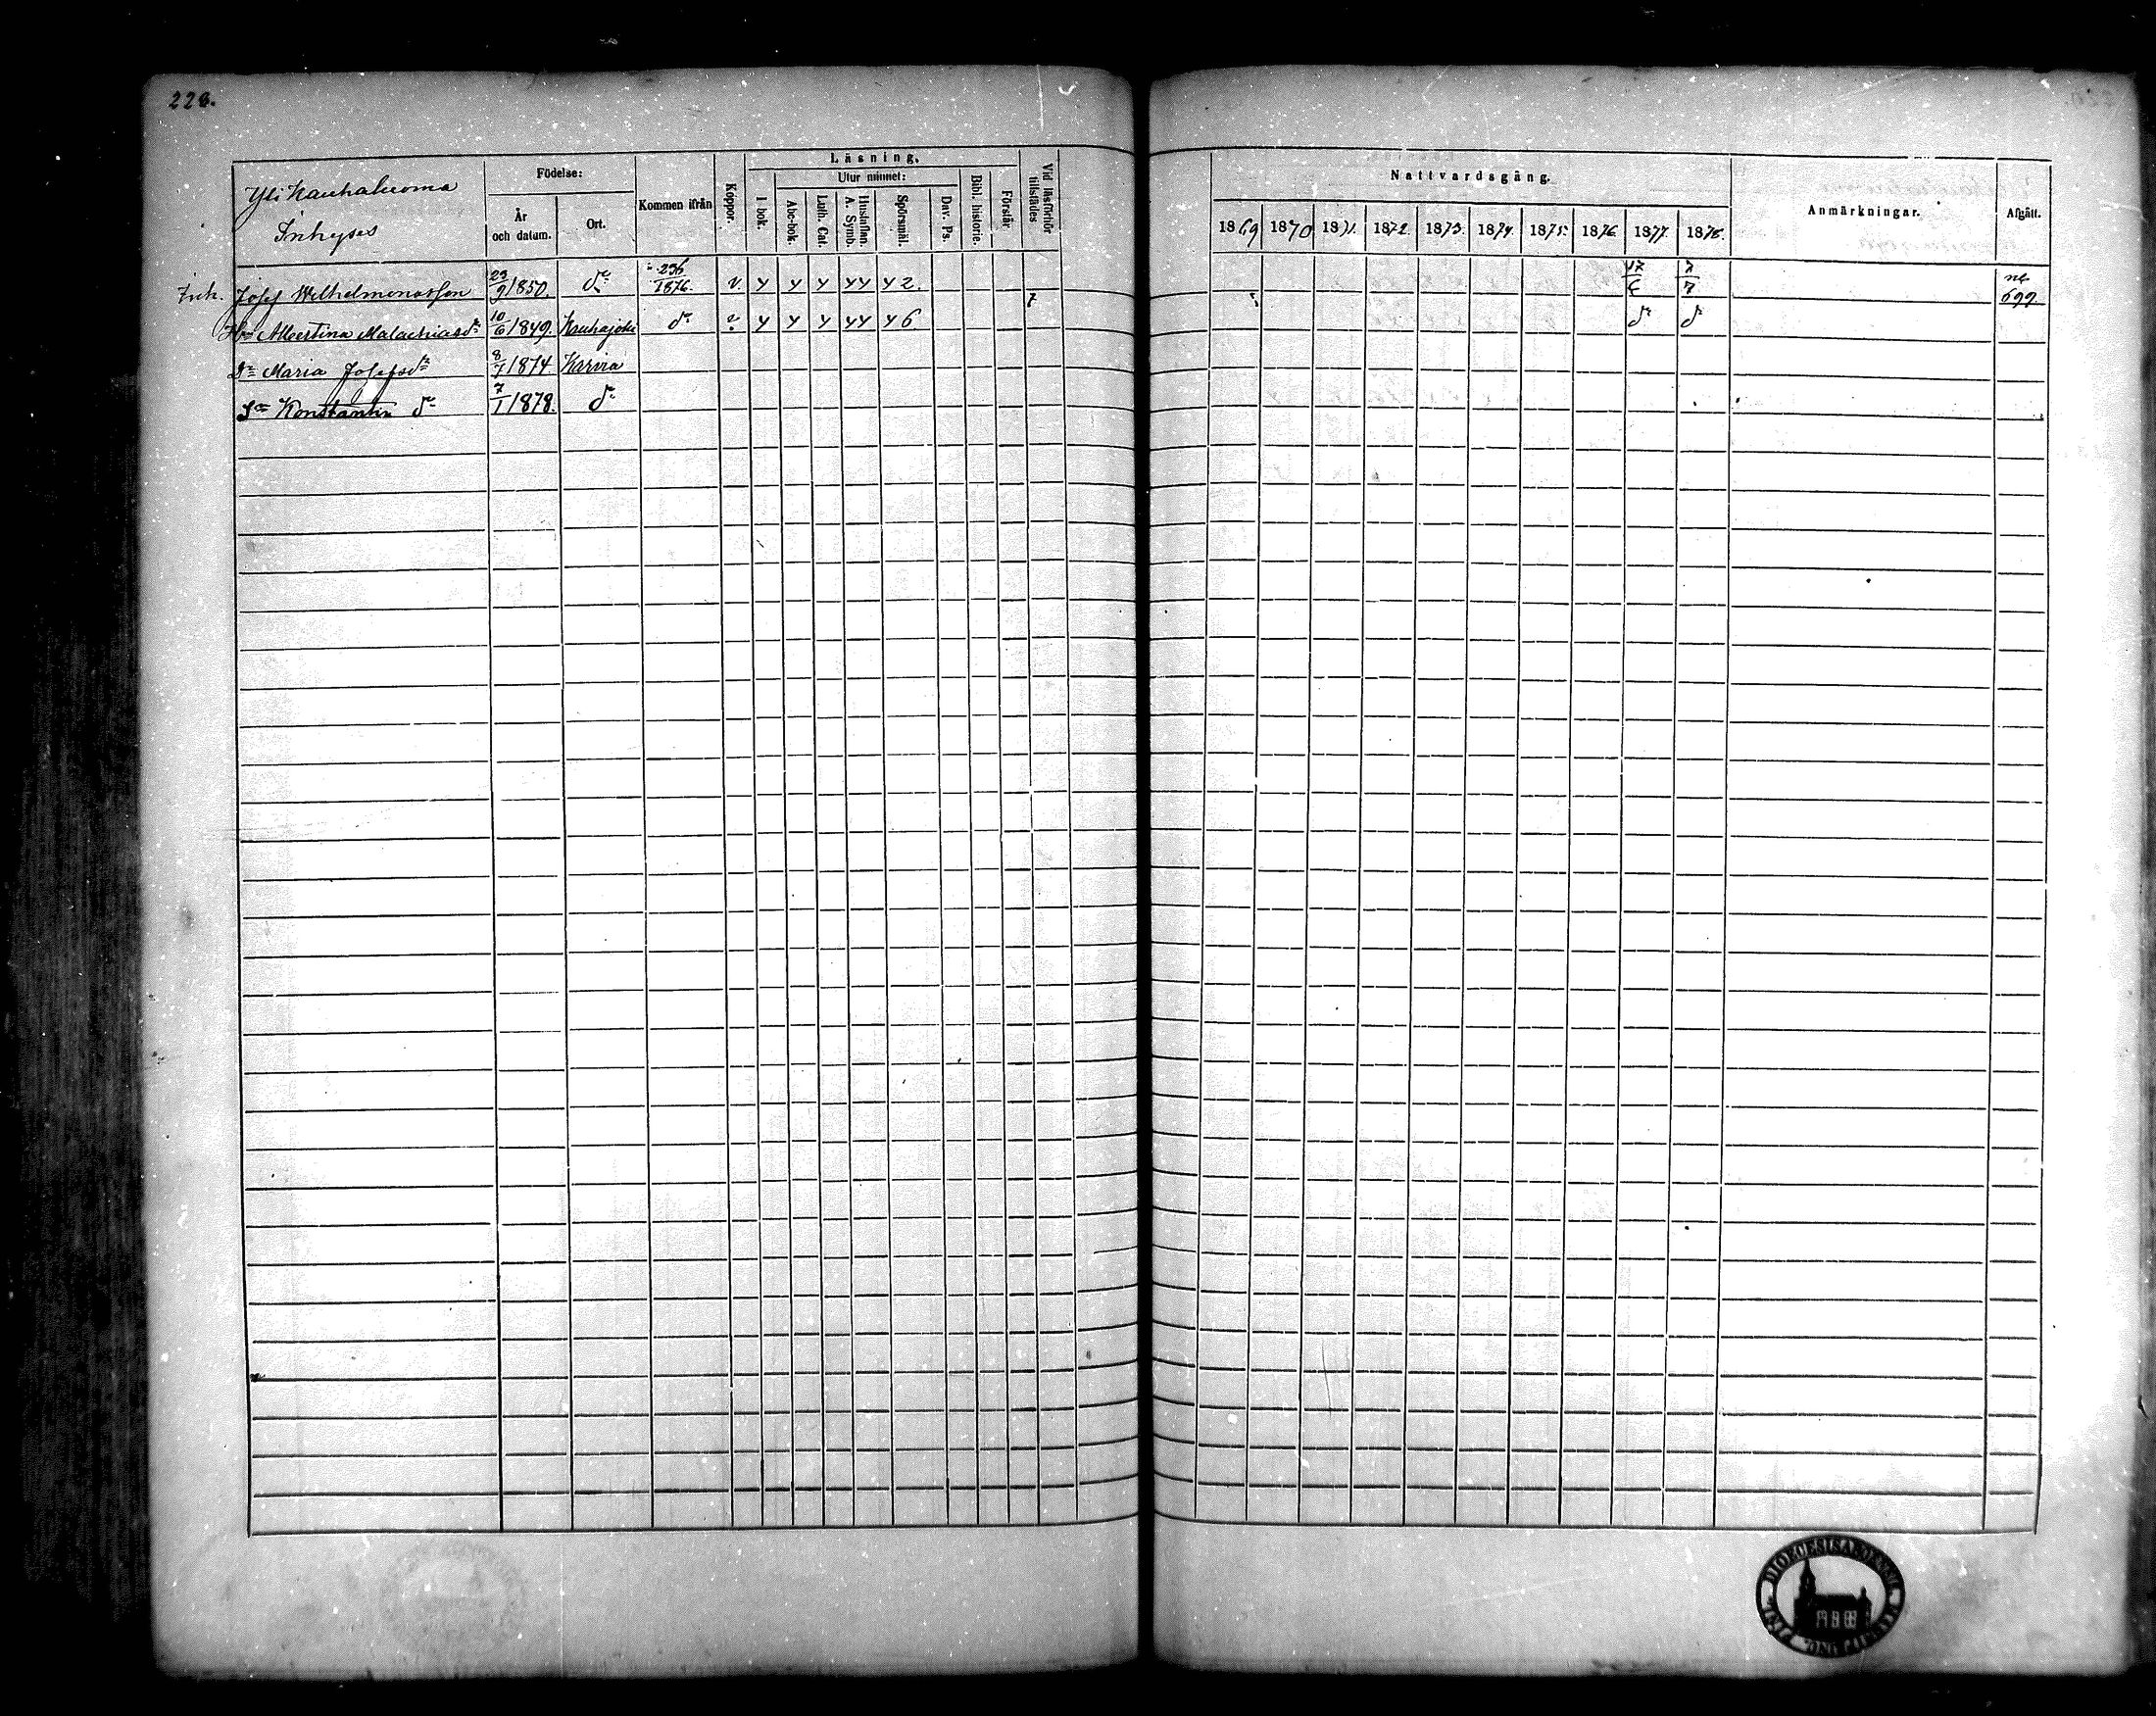 228.
Yli Kauhaluoma
Inhyses
Födelse:
År och datum.
Ort.
Kommen ifrån
Koppor.
Läsning.
I bok.
Utur minnet:
Abc-bok.
Luth. Cat.
Hustaflan. A. Symb.
Spörsmål.
Dav. Ps.
Bibl. historie.
Förstår
Vid läsförhör tillstädes
Nattvardsgång.
1869 1870 1871. 1872. 1873. 1874. 1875. 1876. 1877. 1878.
Anmärkningar.
Afgått.
Inh. Josef Wilhelmonosson 23/9 1850. do 236/1876. v. y y y yy y 2. 17/6 7/7 699
Hu Albertina Malachiasdr 10/6 1849. Kauhajoki do v. y y y yy y 6 do do
Dr Maria Josefsdr 8/7 1874 Karvia
Sn Konstantin do 7/1 1878. do
DIOECESIS ABOENSIS